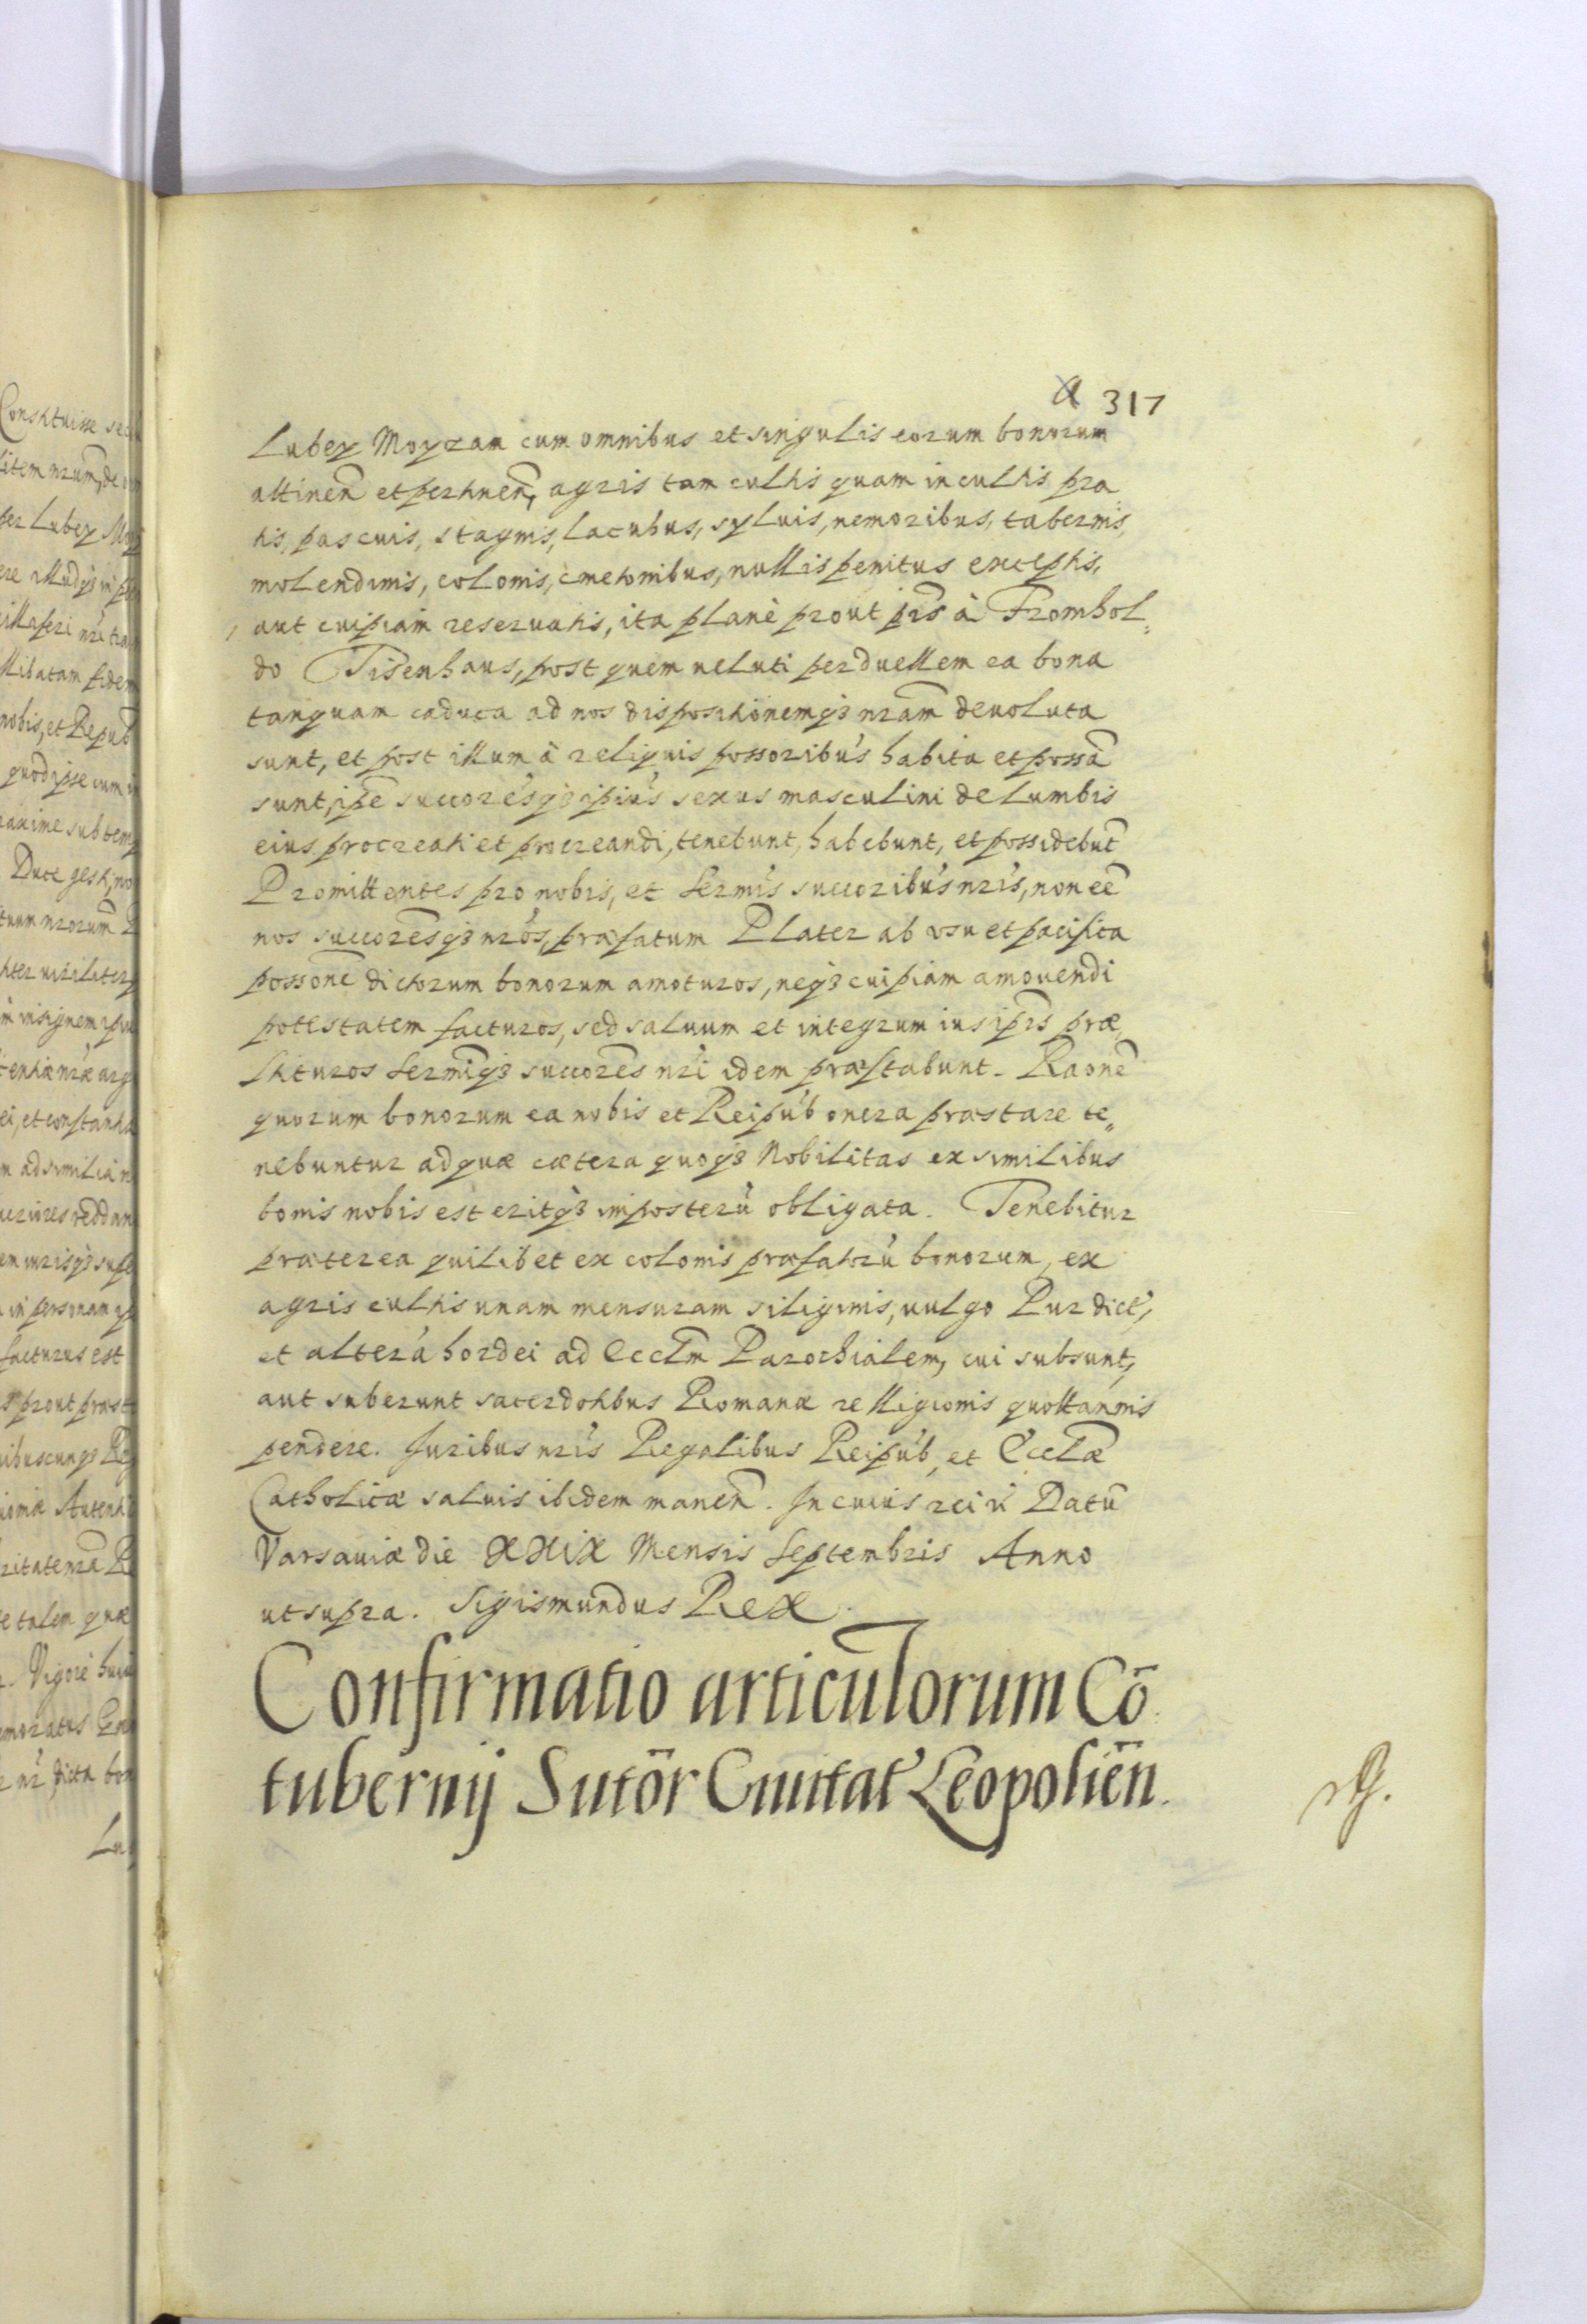 317
Lubey Moyzam cum omnibus et singulis eorum bonorum
attineñ et pertineñ, agris tam cultis quam incultis pra
tis, pascuis, stagnis, lacubus, syluis, nemoribus, tabernis,
molendinis, colonis, cmetonibus, nullis penitus exceptis,
aut cuipiam reseruatis, ita planè prout à Fromhol„
do Tisenhaus, post quem ueluti perduellem ea bona
tanquam caduca ad nos dispositionemq3 nram deuoluta
sunt, et post illum à reliquis possoribus habita et possa
sunt, ipse succoresq3 ipius sexus masculini de lumbis
eius procreati et procreandi, tenebunt, habebunt, et possidebut
Promittentes pro nobis, et Sermis succoribus nris, non eē
nos succoresq3 nros, præfatum Plater ab usu et pacifica
possone dictorum bonorum amoturos, neq3 cuipiam amouendi
potestatem facturos, sed saluum et integrum ius iprs præ
stituros Sermiq3 succores nri idem præstabunt. Raone
quorum bonorum ea nobis et Reipub onera præstare te„
nebuntur ad quæ cætera quoq3 Nobilitas ex similibus
bonis nobis est eritq3 imposterū obligata. Tenebitur
præterea quilibet ex colonis præfatorū bonorum, ex
agris cultis unam mensuram siliginis, uulgo Pur dict,
et alterā hordei ad Ecclm Parochialem, cui subsunt,
aut suberunt sacerdotibus Romanæ relligionis quottannis
pendere. Juribus nris Regalibus Reipub, et Ecclæ
Catholicæ saluis ibidem maneñ. In cuius rei Datū
Varsauiæ die XXIX Mensis Septembris Anno
ut supra. Sigismundus Rex.
Confirmatio articulorum Cō
tubernij Sutōr Ciuitat Leopolieñ.